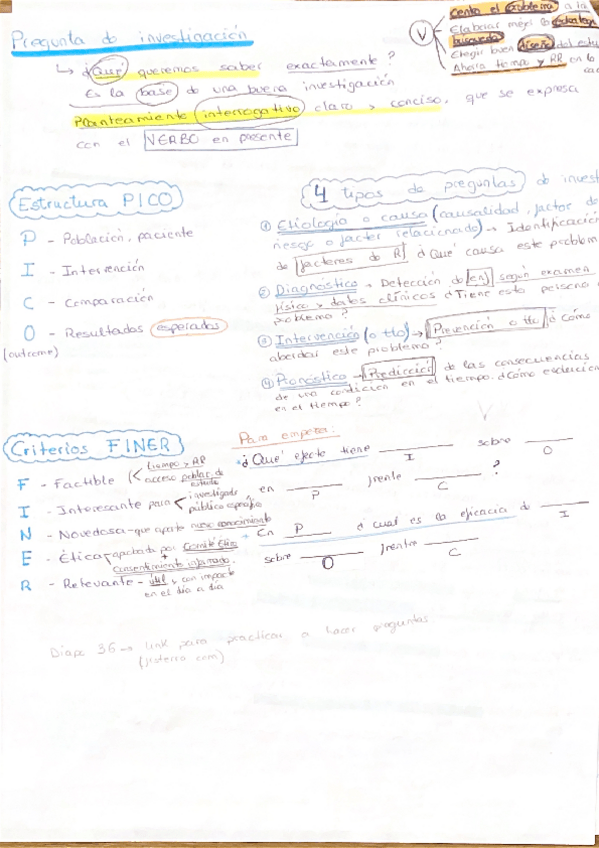 Pregunta de investigación
↳ ¿Qué queremos saber exactamente?
Es la base de una buena investigación
Planteamiento interrogativo claro y conciso, que se expresa
con el VERBO en presente
V
Centra el problema a la
Elaborar mejor la estrategia
búsqueda
Elegir buen diseño del estu
Ahorra tiempo y RR en la
Estructura PICO
P - Población, paciente
I - Intervención
C - Comparación
O - Resultados esperados
(outcome)
4 tipos de preguntas de invest
① Etiología o causa (causalidad, factor de
riesgo o factor relacionado) → Identificación
de factores de R. ¿Qué causa este problem
② Diagnóstico → Detección de en) según examen
físico y datos clínicos ¿Tiene esta persona
problema?
③ Intervención (o tto) → Prevención o tto ¿Cómo
abordar este problema?
④ Pronóstico → Predicción de las consecuencias
de una condición en el tiempo. ¿Cómo
en el tiempo?
Criterios FINER
F - Factible < tiempo y RR
acceso poblac. de estudio
I - Interesante para < investigador
público específico
N - Novedosa - que aporte nuevo conocimiento
E - Ética - aprobada por Comité Ética
+
Consentimiento informado.
R - Relevante - útil y con impacto
en el día a día
Para empezar:
• ¿Qué efecto tiene ____ sobre ____
I O
en ____ frente ____ ?
P C
• En P ____ ¿cuál es la eficacia de ____
I
sobre ____ frente ____
O C
Diapo 36 → link para practicar a hacer preguntas.
(fisterra com)